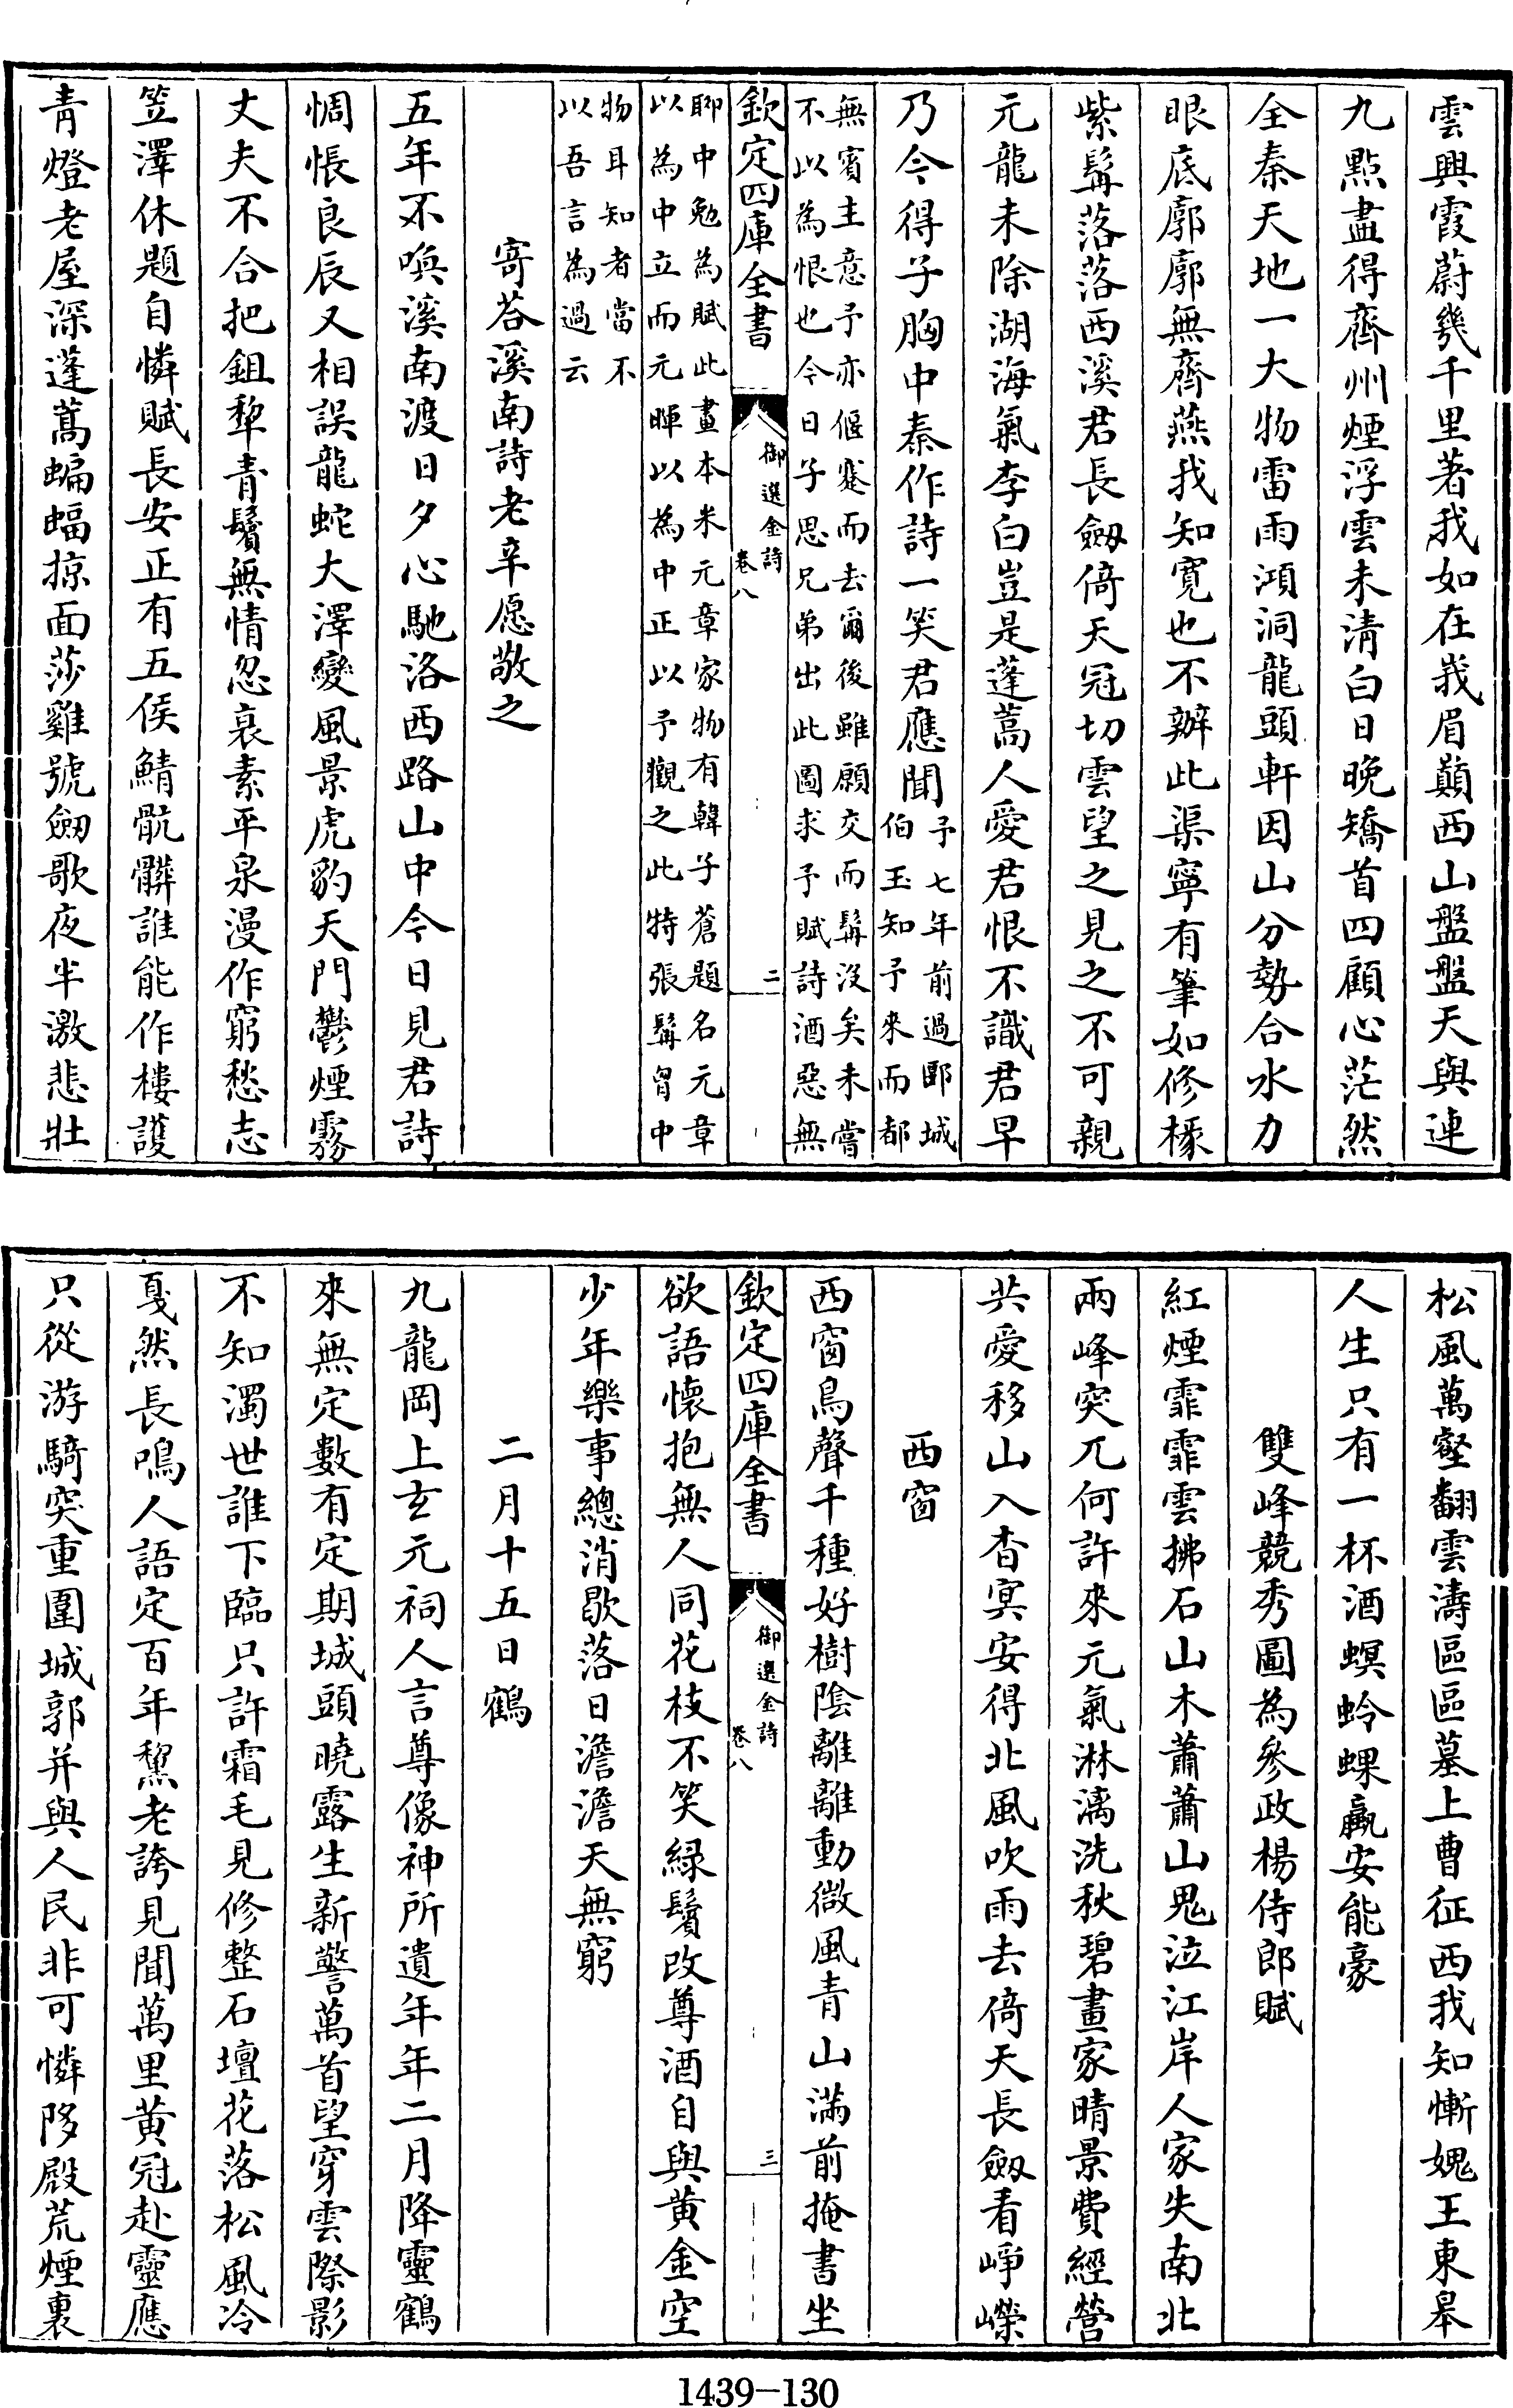 雲興霞蔚幾千里著我如在峩眉巔西山盤盤天與連
九點盡得齊州煙浮雲未清白日晚矯首四顧心茫然
全秦天地一大物雷雨澒洞龍頭軒因山分勢合水力
眼底廓廓無齊燕我知寛也不辦此渠寧有筆如修椽
紫髯落落西溪君長劔倚天冠切雲望之見之不可親
元龍未除湖海氣李白豈是蓬蒿人愛君恨不識君早
乃今得子胸中秦作詩一笑君應聞予七年前過郾城
伯玉知予來而都
無賓主意予亦偃蹇而去爾後雖願交而髯沒矣未嘗
不以為恨也今日子思兄弟出此圖求予賦詩酒惡無
欽定四庫全書
御選金詩
卷八
二
聊中勉為賦此畫本米元章家物有韓子蒼題名元章
以為中立而元暉以為中正以予觀之此特張髯胷中
物耳知者當不
以吾言為過云
寄荅溪南詩老辛愿敬之
五年不喚溪南渡日夕心馳洛西路山中今日見君詩
惆悵良辰又相誤龍蛇大澤變風景虎豹天門鬱煙霧
丈夫不合把鉏犂青鬢無情忽衰素平泉漫作窮愁志
笠澤休題自憐賦長安正有五侯鯖骯髒誰能作樓護
青燈老屋深蓬蒿蝙蝠掠面莎雞號劔歌夜半激悲壯
松風萬壑翻雲濤區區墓上曹征西我知慚媿王東皋
人生只有一杯酒螟蛉蜾蠃安能豪
雙峰競秀圖為參政楊侍郎賦
紅煙霏霏雲拂石山木蕭蕭山鬼泣江岸人家失南北
兩峰突兀何許來元氣淋漓洗秋碧畫家晴景費經營
共愛移山入杳冥安得北風吹雨去倚天長劔看崢嶸
西窗
西窗鳥聲千種好樹陰離離動微風青山滿前掩書坐
欽定四庫全書
御選金詩
卷八
三
欲語懷抱無人同花枝不笑緑鬢改尊酒自與黄金空
少年樂事總消歇落日澹澹天無窮
二月十五日鶴
九龍岡上玄元祠人言尊像神所遺年年二月降靈鶴
來無定數有定期城頭曉露生新警萬首望穿雲際影
不知濁世誰下臨只許霜毛見修整石壇花落松風冷
戛然長鳴人語定百年鯬老誇見聞萬里黄冠赴靈應
只從游騎突重圍城郭并與人民非可憐陊殿荒煙裏
1439-130